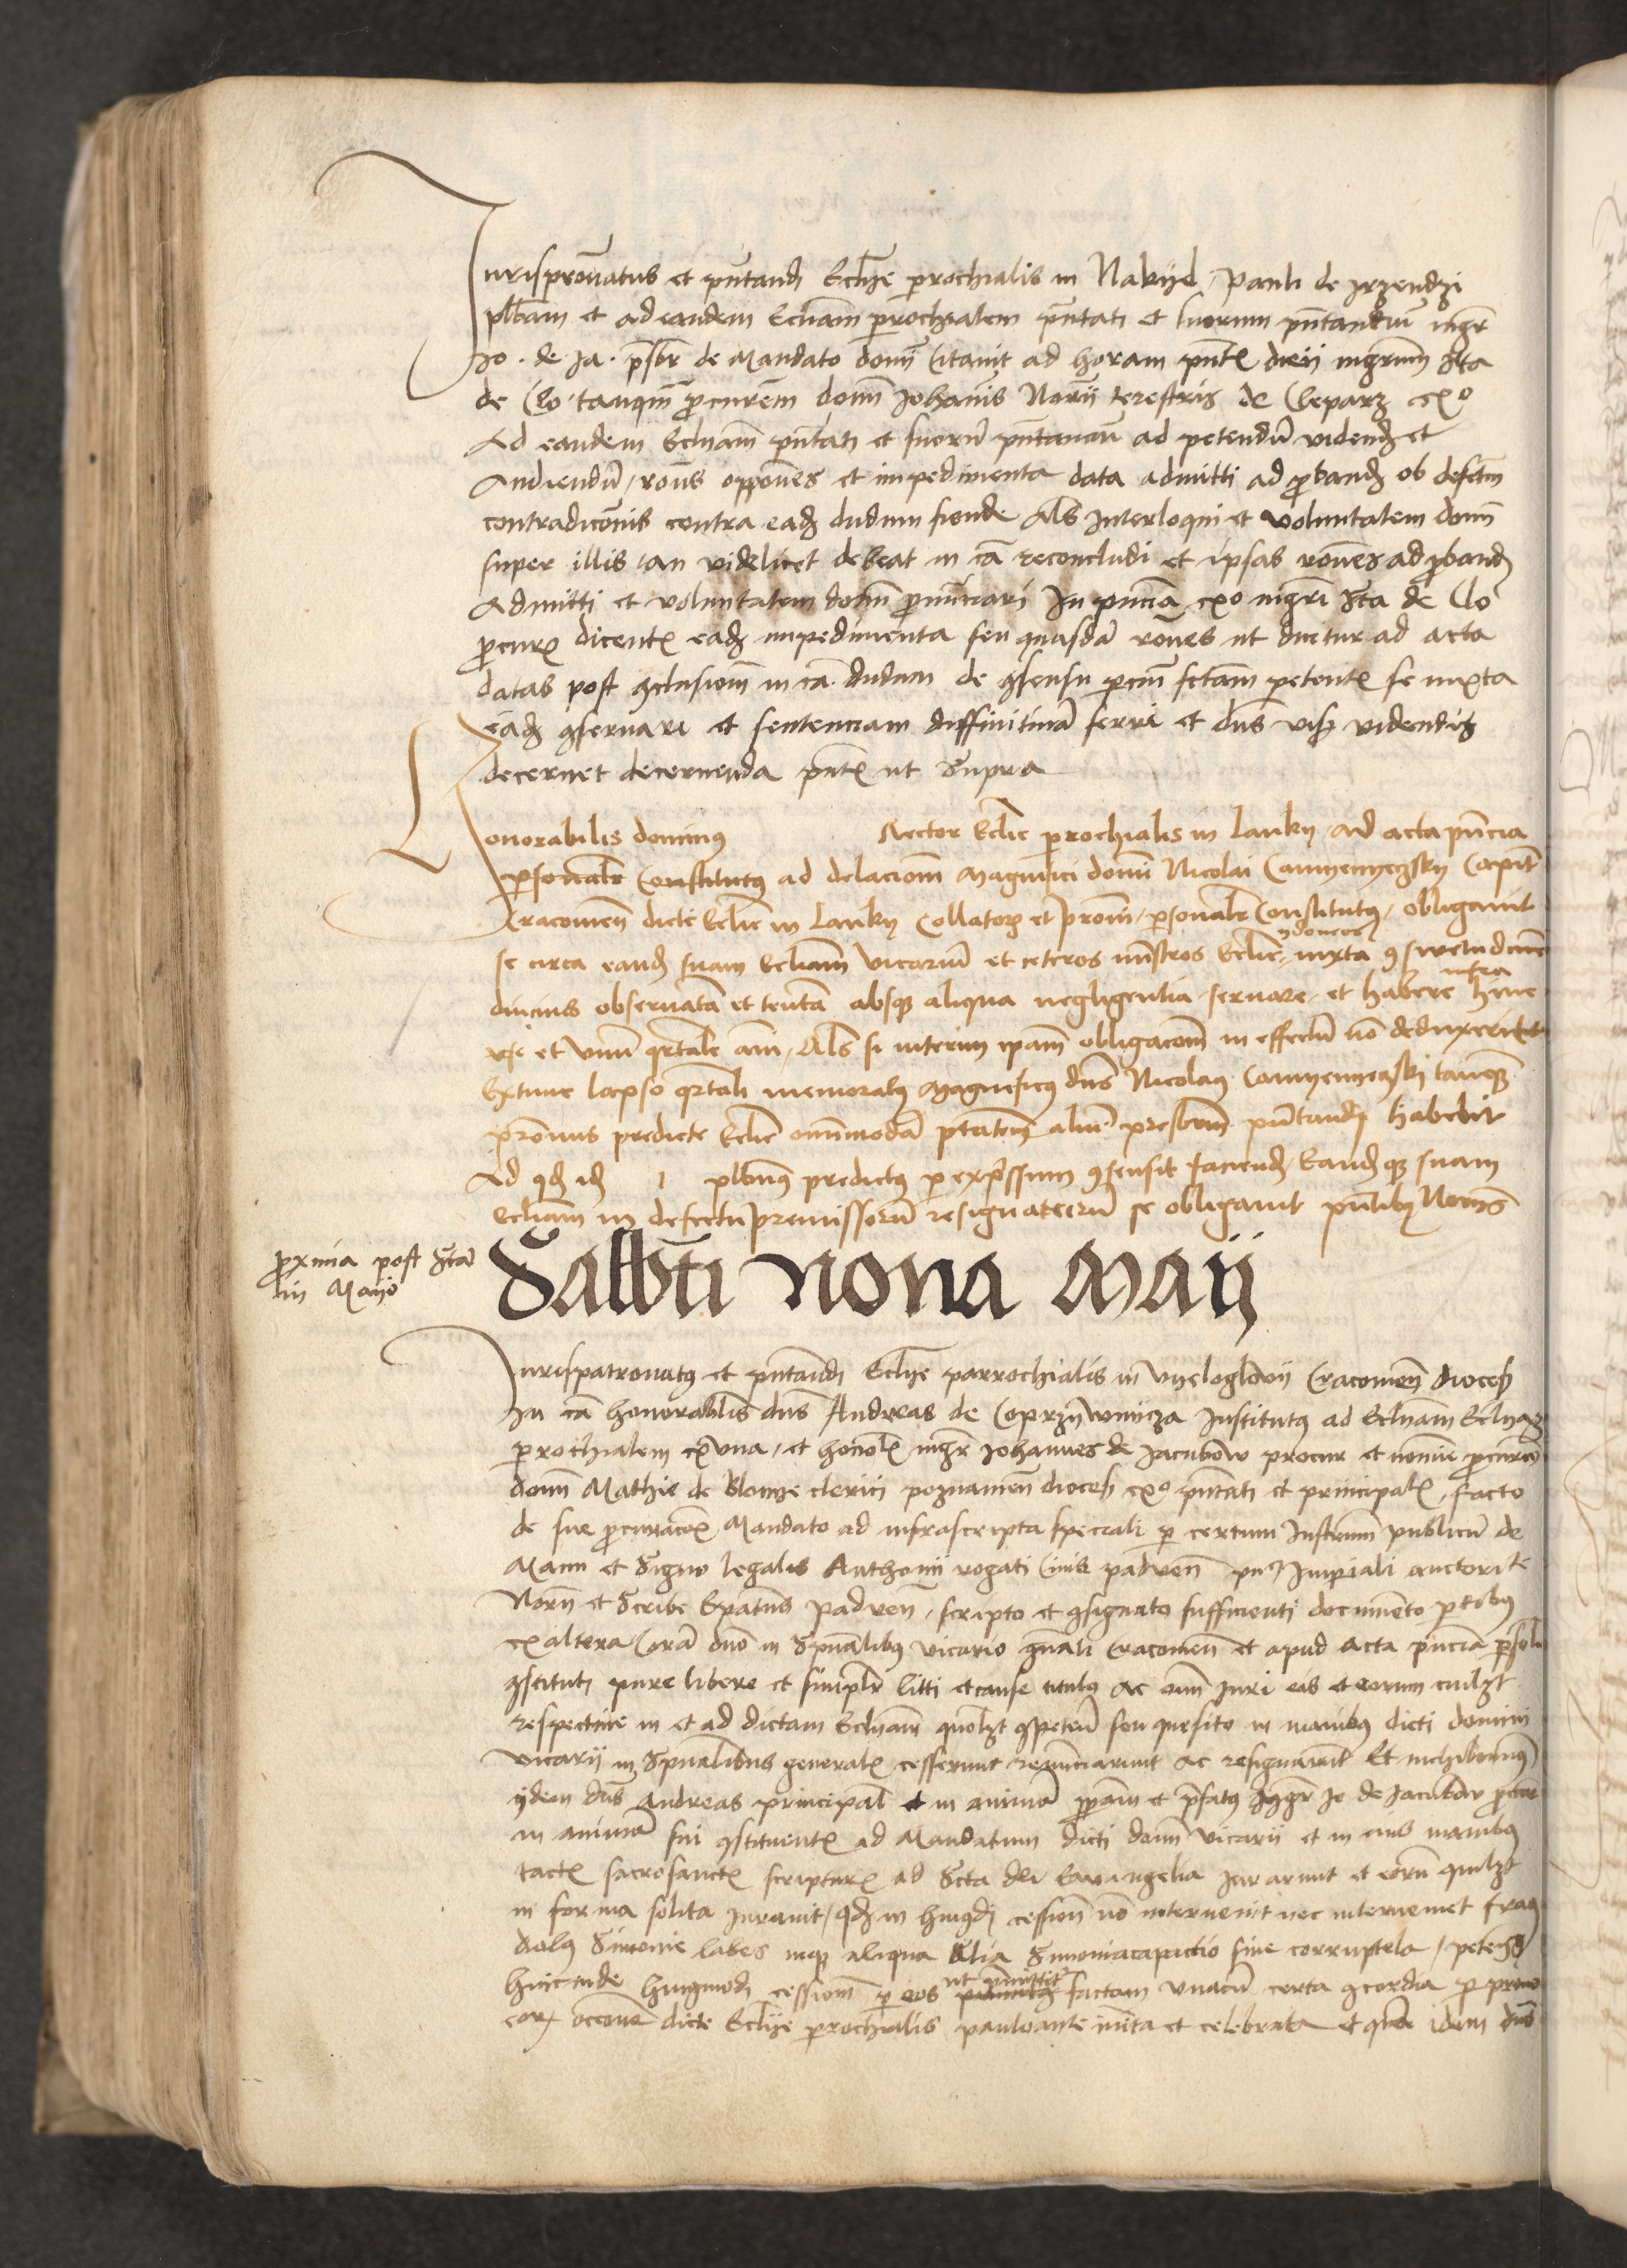 Jurispronatus et pntandi Ecclie parochialis in Nakyel, Pauli de
plbani et ad eandem Eccliam parochialem pntati et suorum pntantium mgr
Jo. de Ja. prbr de Mandato domini citavit ad horam pntem mgrum Sta
de Clo tanquam procurem domini Johannis Norij terrestris de Cleparz exo
Ad eandem Eccliam pntati et suorum pntantium ad petendum videndum et
Audiendum rones oppones et impedimenta data admitti ad probandum ob defectum
contradiconis contra eadem dudum fiende Als Interloqui et voluntatem domini
super illis an videlicet debeat in ca reconcludi et ipsas rones ad probandum
Admitti et voluntatem domini pronunciari In pncia exo mgri Sta de Clo
procurem dicentem eadem impedimenta seu quasdam rones ut dicitur ad acta
datas post conclusionem in ca dudum de consensu parcium factam petentem se iuxta
eadem conservari et sentenciam diffinitivam ferri et dns visis videndis
decernet decernenda pntem ut Supra
Honorabilis dominus Rector Ecclie parochialis in Lanky ad acta pncia
personaliter Constitutus ad delacionem Magnifici domini Nicolai Camyenyeczsky Capit
Cracovien dicte Ecclie in Lanky Collatoris et Proni personaliter Constitutus, obligavit
se circa eandem suam Eccliam vicarium et ceteros ministros Ecclie ydoneos iuxta consuetudinem
diucius observatam et tentam absque aliqua negligentia servare et habere infra hinc
et unum quartale anni, Als si interim ipam obligacionem in effectum non deduxerit
Extunc lapso quartali memoratus Magnificus dns Nicolaus Camyenyeczski tanquam
pronus predicte Ecclie omnimodam ptatem alium presbrum pntandi habebit
Ad quod idem plbnus predictus per expressum consensit faciendum, Eandemque suam
Eccliam in defectu premissorum resignaturum se obligavit pntibus Noris
proxima post Sta
in Mayo
Sabbti nona Maij
Jurispatronatus et pntandi Ecclie parrochialis in Vyeloglowij Cracovien dioces
In ca honorabilis dns Andreas de Coprzywnicza Institutus ad Eccliam Ecclia
parochialem ex una, et honolis mgr Johannes de Jacubow procur et nomine procurio
domini Mathie de Blonye clerici poznanien dioces exo pntati et principalis, facto
de sue procuracionis Mandato ad infrascripta speciali per certum Instrum publicum de
Manu et Signo legalis Anthonii rogati Civis paduen pu Imperiali auctoritate
Norij et Scribe Epatus paduen, scripto et consignato sufficienti documento partibus
ex altera Coram dno in Spualibus vicario gnali Cracovien et apud Acta pncia personaliter
constituti pure libere et simpliciter litti et cause titulis ac omni Juri eis et eorum cuilibet
respective in et ad dictam Eccliam quolibet competenti seu quesito in manibus dicti domini
vicarij in Spualibus generalis cesserunt renunciarunt ac resignarunt Et nichilominus
ijdem dns Andreas principalis in animam propriam et prefatus Mgr Jo de Jacubow procur
in animam sui constituentis ad Mandatum dicti domini vicarij et in eius manibus
tactis sacrosanctis scripturis ad Sta dei Ewangelia Jurarunt et eorum quilibet
in forma solita Juravit, quod in huiusmodi cessione non intervenit nec interveniet fraus
dolus Simonie labes neque aliqua Alia Simoniaca pactio sive corruptela, petentes
hincinde huiusmodi cessionem per eos ut premittitur factam unacum certa concordia per
eorum occasione dicte Ecclie parochialis paulo ante inita et celebrata et idem dns